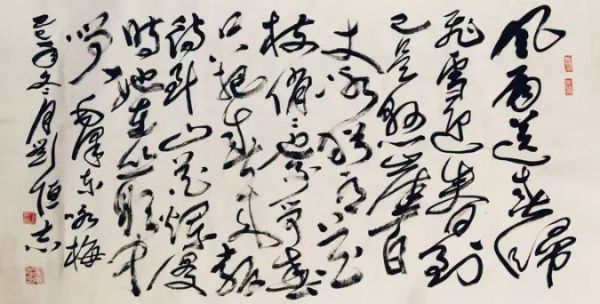 风雨送春歸
飛雪迎春到
已是悬崖百
丈冰犹有花
枝俏俏也不争春
只把春来報
待到山花烂漫
時她在丛中
笑 毛澤东咏梅
冬月劉恒志